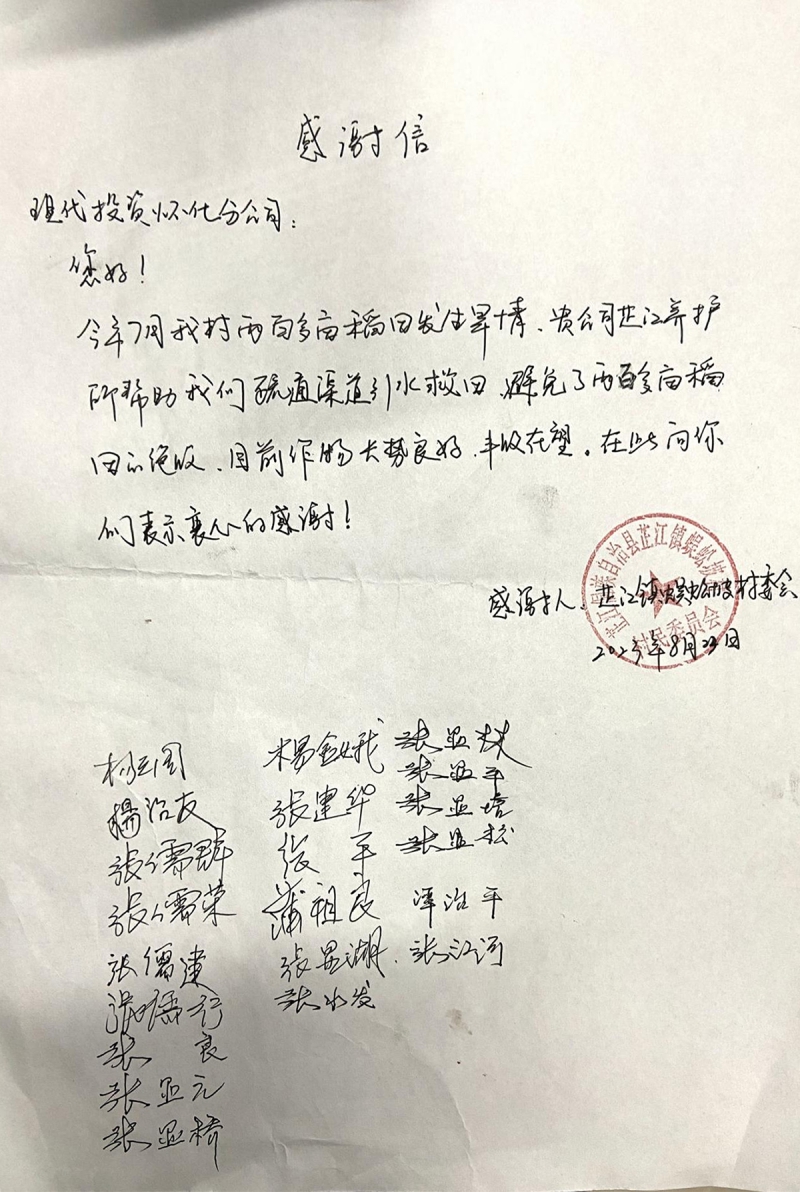 感谢信
现代投资怀化分公司：
您好！
今年7月我村两百多亩稻田发生旱情、贵公司芷江养护
所帮助我们疏通渠道引水救田、避免了两百多亩稻
田的绝收、目前作物长势良好、丰收在望。在此向你
们表示衷心的感谢！
芷江侗族自治县芷江镇蜈蚣坡村
村民委员会
感谢人：芷江镇蜈蚣坡村委会
2023年8月23日
杨治友
张儒群
张儒荣
张儒建
张儒行
张良
张显元
张显桥
杨金娥
张建华
张平
蒲祖良
张显湖
张水发
张显平
张显培
张显松
谭治平
张江河